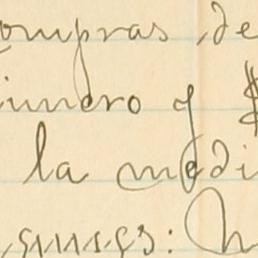 ompras de
imero y $
la medi